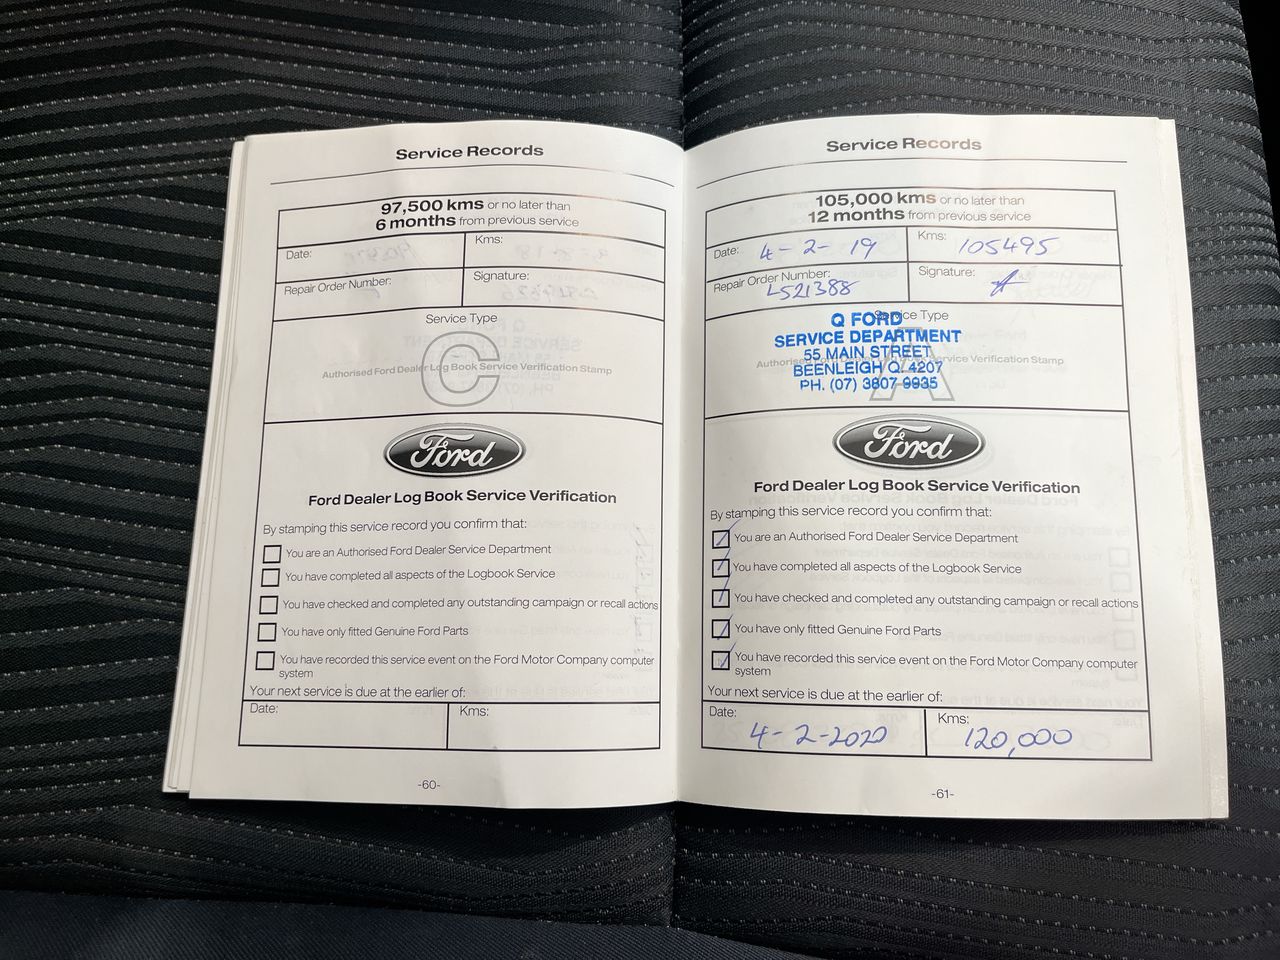 Service Records
97,500 kms or no later than
6 months from previous service
Date:
Kms:
Repair Order Number:
Signature:
Service Type
C
Authorised Ford Dealer Log Book Service Verification Stamp
Ford
Ford Dealer Log Book Service Verification
By stamping this service record you confirm that:
You are an Authorised Ford Dealer Service Department
You have completed all aspects of the Logbook Service
You have checked and completed any outstanding campaign or recall actions
You have only fitted Genuine Ford Parts
You have recorded this service event on the Ford Motor Company computer
system
Your next service is due at the earlier of:
Date:
Kms:
-60-
Service Records
105,000 kms or no later than
12 months from previous service
Date: 4-2-19
Kms: 105495
Repair Order Number:
L521388
Signature:
Service Type
A
Q FORD
SERVICE DEPARTMENT
55 MAIN STREET
Authorised Ford Dealer Log Book Service Verification Stamp
BEENLEIGH Q. 4207
PH. (07) 3807 9935
Ford
Ford Dealer Log Book Service Verification
By stamping this service record you confirm that:
You are an Authorised Ford Dealer Service Department
You have completed all aspects of the Logbook Service
You have checked and completed any outstanding campaign or recall actions
You have only fitted Genuine Ford Parts
You have recorded this service event on the Ford Motor Company computer
system
Your next service is due at the earlier of:
Date:
4-2-2020
Kms:
120,000
-61-